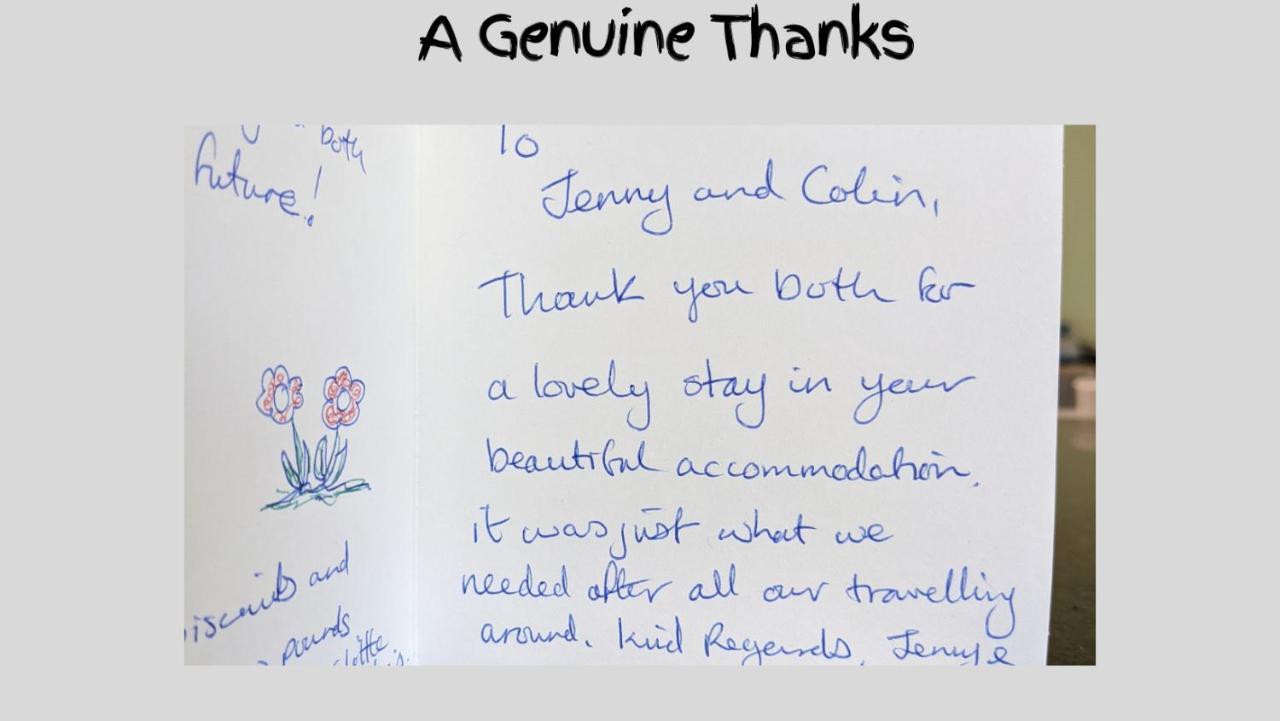 A Genuine Thanks
both
future!
To
Jenny and Colin,
Thank you both for
a lovely stay in your
beautiful accommodation.
it was just what we
needed after all our travelling
around. Kind Regards,
and
pounds